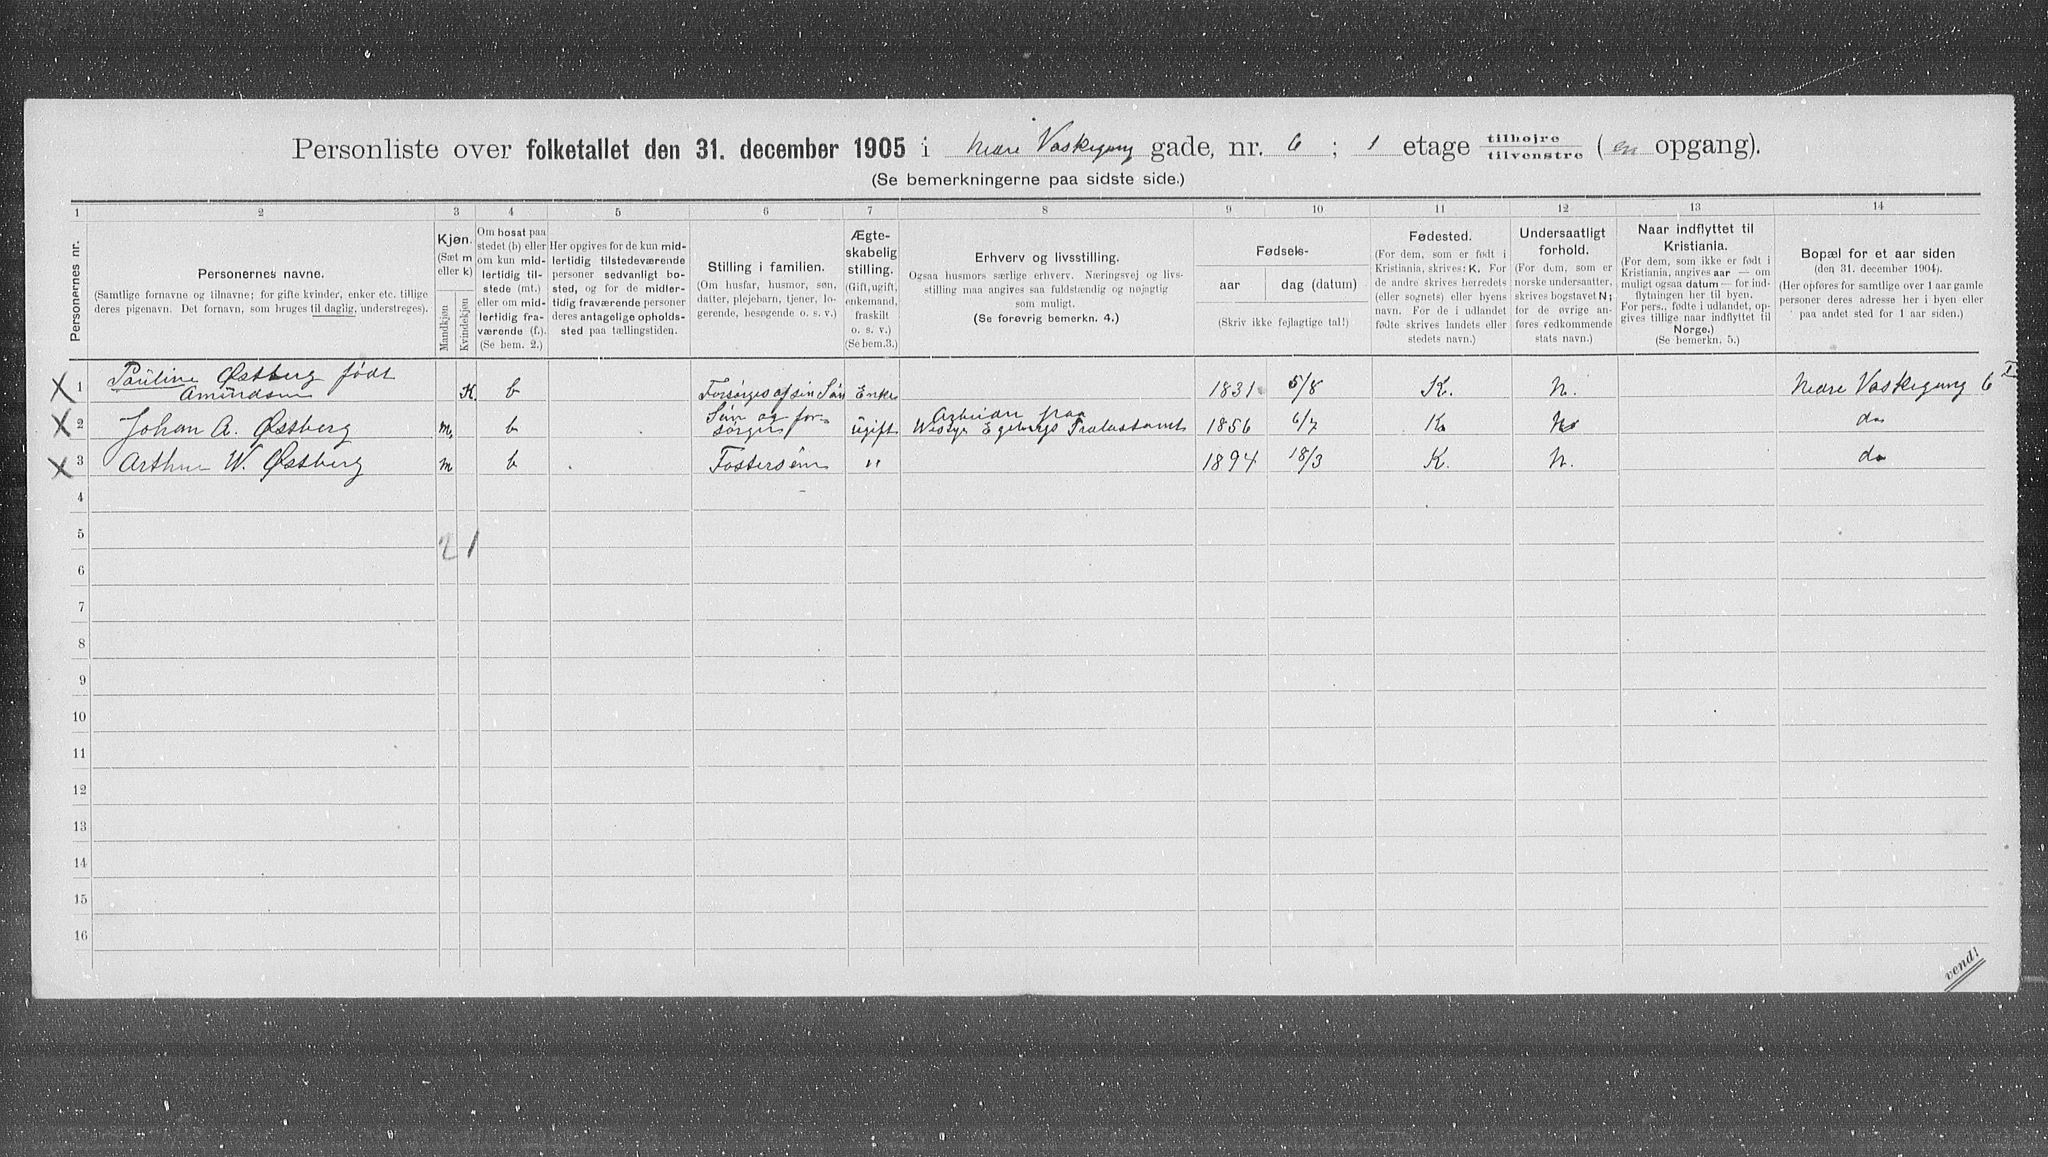 Personliste over folketallet den 31. december 1905 i Nedre Vaskegang gade, nr. 6 ; 1 etage tilhøjre tilvenstre (en opgang).
(Se bemerkningerne paa sidste side.)
1 2 3 4 5 6 7 8 9 10 11 12 13 14
Personernes nr.
Personernes navne.
(Samtlige fornavne og tilnavne; for gifte kvinder, enker etc. tillige
deres pigenavn. Det fornavn, som bruges til daglig, understreges).
Kjøn.
(Sæt m
eller k)
Mandkjøn
Kvindekjøn
Om bosat paa
stedet (b) eller
om kun mid-
lertidig til-
stede (mt.)
eller om mid-
lertidig fra-
værende (f.).
(Se bem. 2.)
Her opgives for de kun mid-
lertidig tilstedeværende
personer sedvanligt bo-
sted, og for de midler-
tidig fraværende personer
deres antagelige opholds-
sted paa tællingstiden.
Stilling i familien.
(Om husfar, husmor, søn,
datter, plejebarn, tjener, lo-
gerende, besøgende o. s. v.)
Ægte-
skabelig
stilling.
(Gift, ugift,
enkemand,
fraskilt
o. s. v.)
(Se bem. 3.)
Erhverv og livsstilling.
Ogsaa husmors særlige erhverv. Næringsvej og livs-
stilling maa angives saa fuldstændig og nøjagtig
som muligt.
(Se forøvrig bemerkn. 4.)
Fødsels-
aar dag (datum)
(Skriv ikke fejlagtige tal!)
Fødested.
(For dem, som er født i
Kristiania, skrives: K. For
de andre skrives herredets
(eller sognets) eller byens
navn. For de i udlandet
fødte skrives landets eller
stedets navn.)
Undersaatligt
forhold.
(For dem, som er
norske undersaatter,
skrives bogstavet N;
for de øvrige an-
føres vedkommende
stats navn.)
Naar indflyttet til
Kristiania.
(For dem, som ikke er født i
Kristiania, angives aar — om
muligt ogsaa datum — for ind-
flytningen her til byen.
For pers., fødte i udlandet, op-
gives tillige naar indflyttet til
Norge.)
(Se bemerkn. 5.)
Bopæl for et aar siden
(den 31. december 1904).
(Her opføres for samtlige over 1 aar gamle
personer deres adresse her i byen eller
paa andet sted for 1 aar siden.)
X 1 Pauline Østberg født Amundsen K. b Forsørges af sin Søn Enke 1831 5/8 K. N. Nedre Vaskegang 6 I
X 2 Johan A. Østberg m. b Søn og forsørger ugift Arbeider paa Westye Egebergs Trælastomt 1856 6/7 K. N. do
X 3 Arthur W. Østberg m b Fostersøn " 1894 18/3 K. N. do
4
5
2 1
6
7
8
9
10
11
12
13
14
15
16
vend!